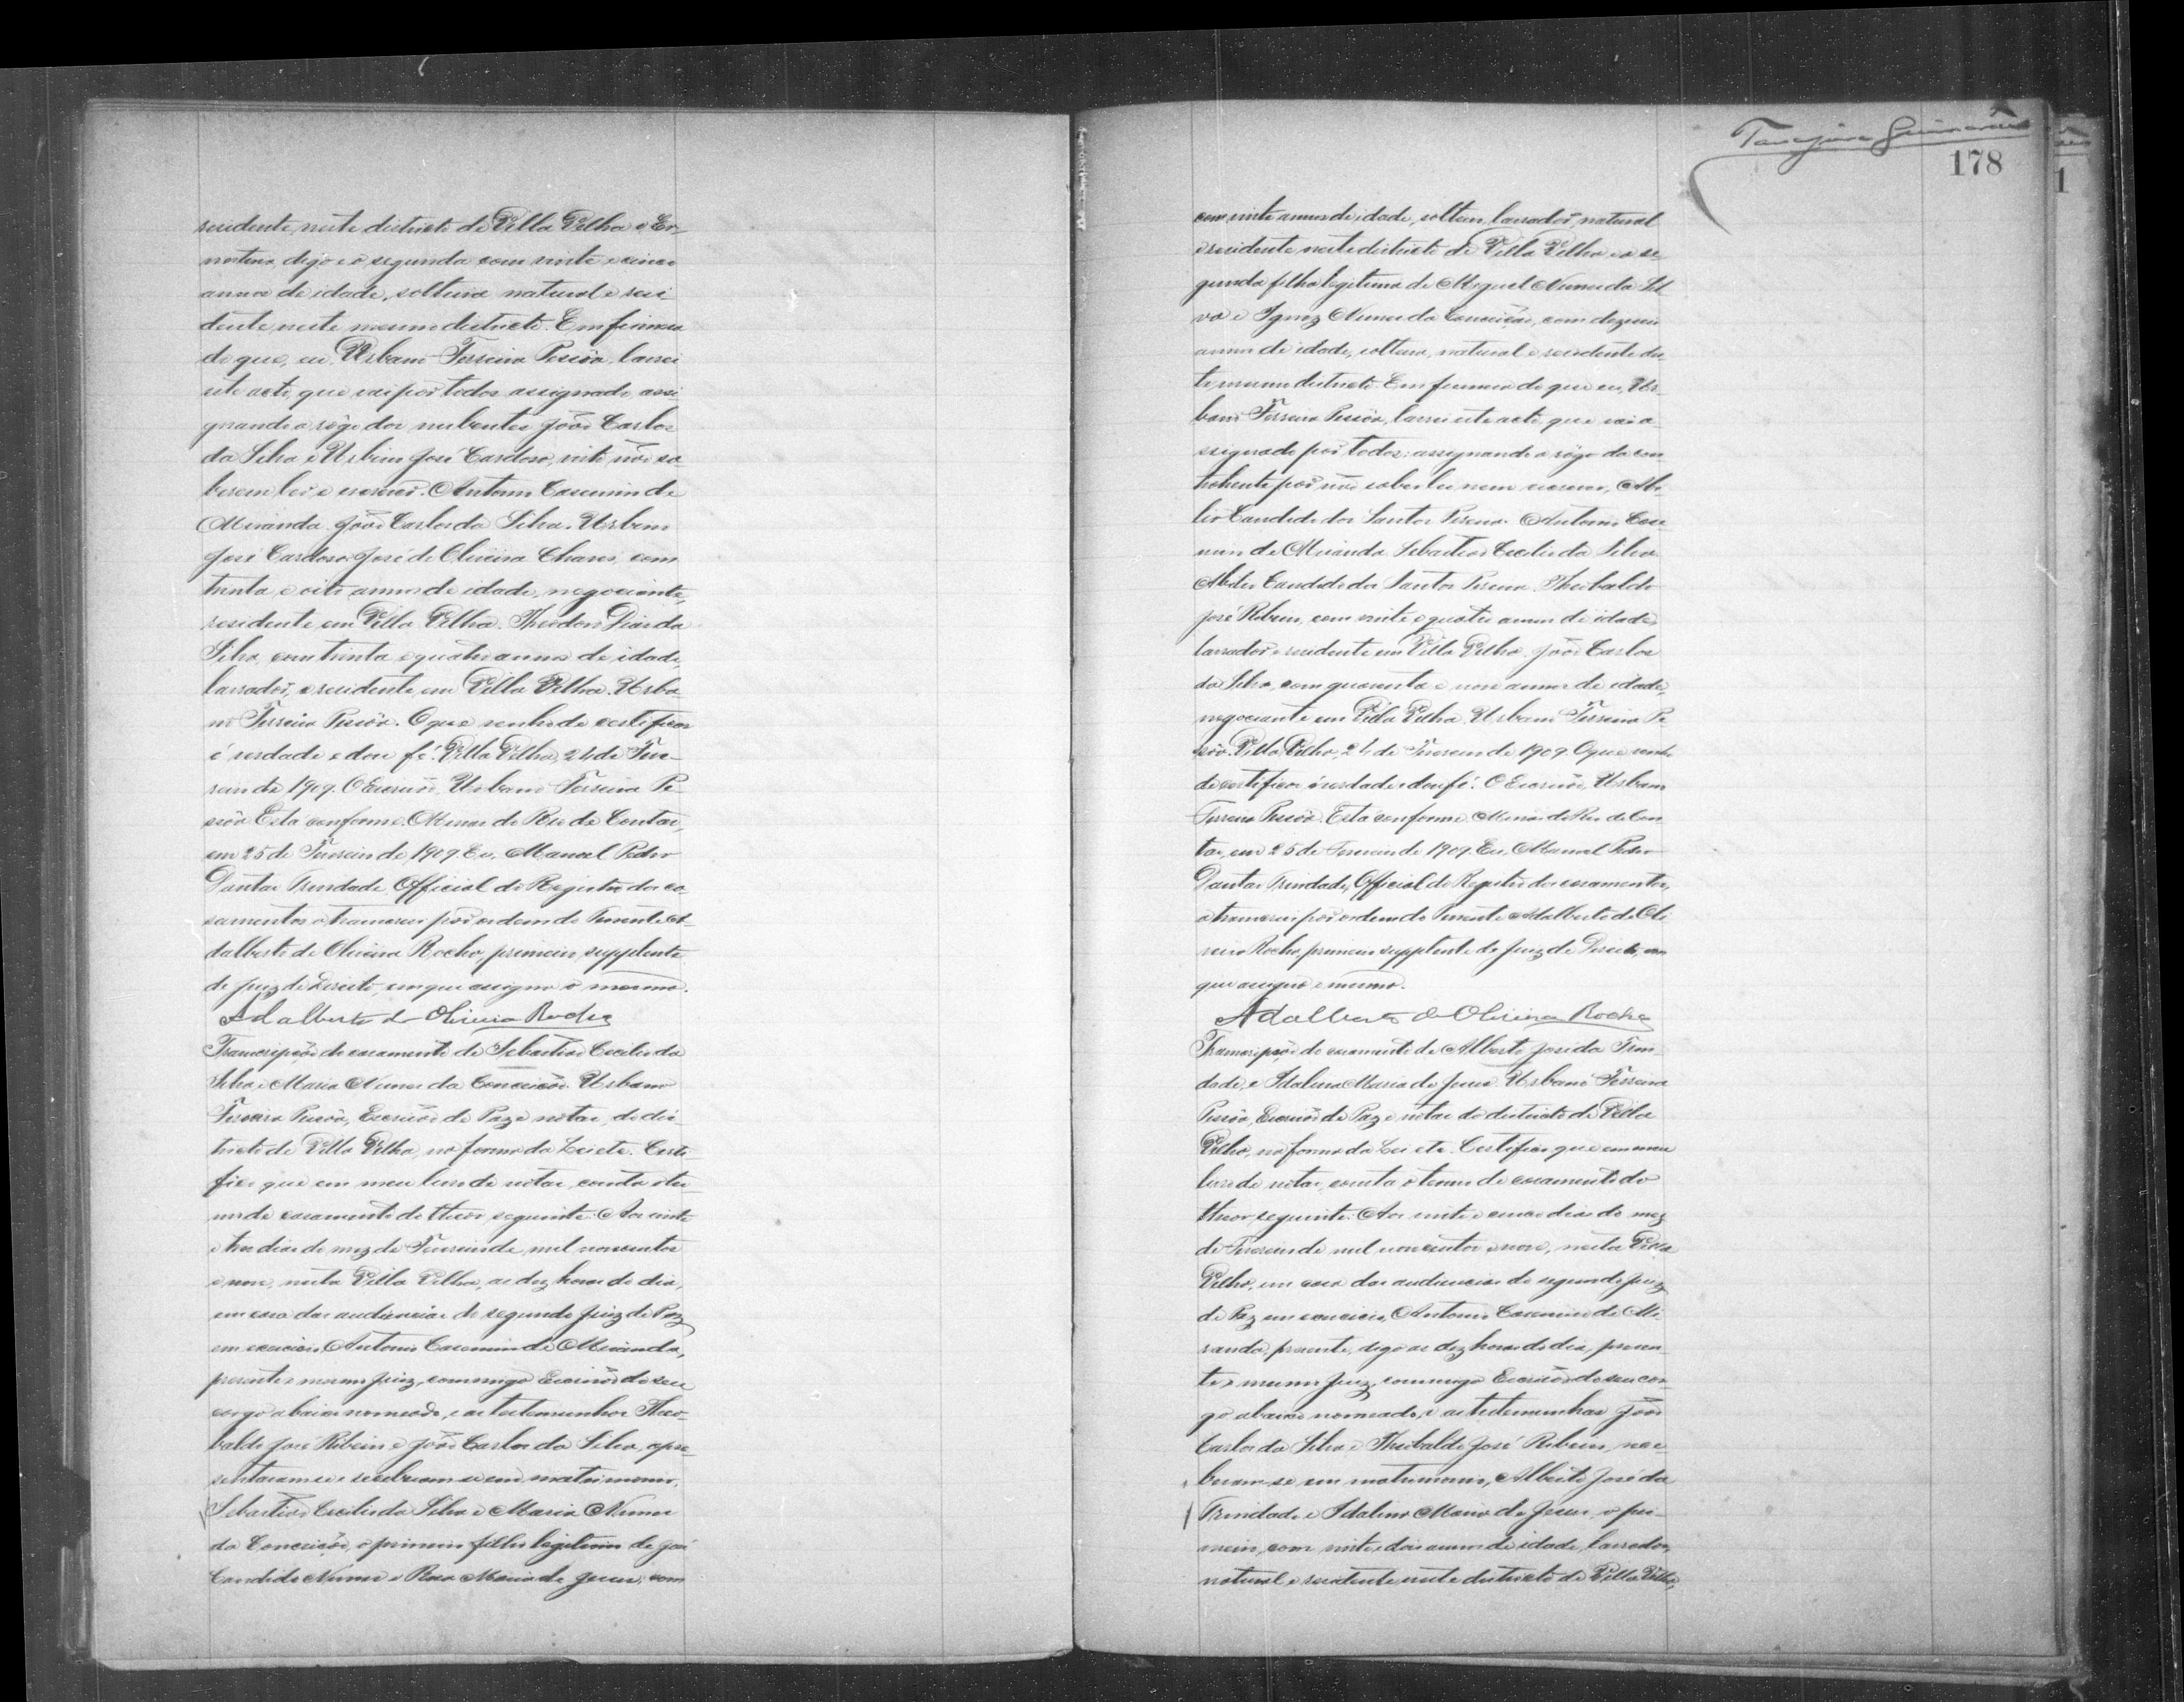 residente neste districto de Villa Velha e Er-
nestina, digo e a segunda com vinte e cinco
annos de idade, solteira natural e resi
dente neste mesmo districto. Em firmesa
do que, eu, Urbano Ferreira Pessôa, lavrei
este acto, que vai por todos assignado, assi
gnando a rôgo dos nubentes João Carlos
da Silva e Urbino José Cardoso, visto não sa
berem ler e escrever. Antonio Casemiro de
Miranda. João Carlos da Silva. Urbino
José Cardoso. José de Oliveira Chaves, com
trinta e oito annos de idade, negociante,
residente em Villa Velha. Theodoro Dias da
Silva, com trinta e quatro annos de idade,
lavrador, e residente em Villa Velha. Urba-
no Ferreira Pessôa. O que venho de certificar
é verdade e dou fé. Villa Velha, 24 de Feve-
reiro de 1909. O Escrivão, Urbano Ferreira Pe-
ssôa Está conforme. Minas do Rio de Contas,
em 25 de Fevereiro de 1909. Eu, Manoel Pedro
Dantas Trindade Official do Registro dos ca-
samentos o transcrevi por ordem do Tenente A-
dalberto de Oliveira Rocha, primeiro supplente
do juiz de Direito, em que assigna o mesmo.
Adalberto de Oliveira Rocha
Transcripção do casamento de Sebastião Cecilio da
Silva e Maria Nunes da Conceição. Urbano
Ferreira Pessôa, Escrivão de Paz e notas, do dis
tricto de Villa Velha, na forma da Lei etc. Certi-
fico que em meu livro de notas, consta o ter-
mo de casamento do theor seguinte: Aos vinte
e tres dias do mez de Fevereiro de mil novecentos
e nove, nesta Villa Velha, as dez horas do dia,
em casa das audiencias do segundo Juiz de Paz
em exercicio, Antonio Casemiro de Miranda,
presente o mesmo Juiz, commigo Escrivão do seu
cargo abaixo nomeado, e as testemunhas Theo-
baldo José Ribeiro e João Carlos da Silva, apre-
sentaram-se e receberam-se em matrimonio,
Sebastião Cecilio da Silva e Maria Nunes
da Conceição, o primeiro filho legitimo de José
Candido Nunes e Rosa Maria de Jesus, com
Guimarães
178
com vinte annos de idade, solteiro, lavrador, natural
e residente neste districto de Villa Velha e a se-
gunda filha legitima de Miguel Nunes da Sil
va e Ignez Nunes da Conceição, com dezeseis
annos de idade, solteira, natural e residente des-
te mesmo districto. Em firmesa do que eu, Ur-
bano Ferreira Pessôa, lavrei este acto que vai a
ssignado por todos; assignando a rôgo da con-
trahente por não saber ler nem escrever, Abi-
lio Candido dos Santos Pereira. Antonio Case
miro de Miranda. Sebastião Cecilio da Silva.
Abilio Candido dos Santos Pereira. Theobaldo
José Ribeiro, com vinte e quatro annos de idade,
lavrador e residente em Villa Velha. João Carlos
da Silva, com quarenta e nove annos de idade,
negociante em Villa Velha. Urbano Ferreira Pe
ssôa. Villa Velha, 24 de Fevereiro de 1909. O que venho
de certificar é verdade e dou fé. O Escrivão, Urbano
Ferreira Pessôa. Está conforme. Minas do Rio de Con-
tas, em 25 de Fevereiro de 1909. Eu, Manoel Pedro
Dantas Trindade, Official do Registro dos casamentos,
o transcrevi por ordem do Tenente Adalberto de Oli
veira Rocha, primeiro supplente do Juiz de Direito, em
que assigna o mesmo.
Adalberto de Oliveira Rocha
Transcripção do casamento de Alberto José da Trin-
dade, e Idalina Maria de Jesus. Urbano Ferreira
Pessôa, Escrivão de Paz e notas do districto de Villa
Velha, na forma da Lei etc. Certifico que em meu
livro de notas, consta o termo de casamento do
theor seguinte: Aos vinte e cinco dias do mez
de Fevereiro de mil novecentos e nove, nesta Villa
Velha, em casa das audiencias do segundo Juiz
de Paz em exercicio, Antonio Casemiro de Mi-
randa, presente, digo as dez horas do dia, presen-
te o mesmo Juiz, commigo Escrivão do seu car-
go abaixo nomeado, e as testemunhas João
Carlos da Silva e Theobaldo José Ribeiro, rece
beram-se em matrimonio, Alberto José da
Trindade e Idalina Maria de Jesus, o pri-
meiro, com vinte e dois annos de idade, lavrador,
natural e residente neste districto de Villa Velha,